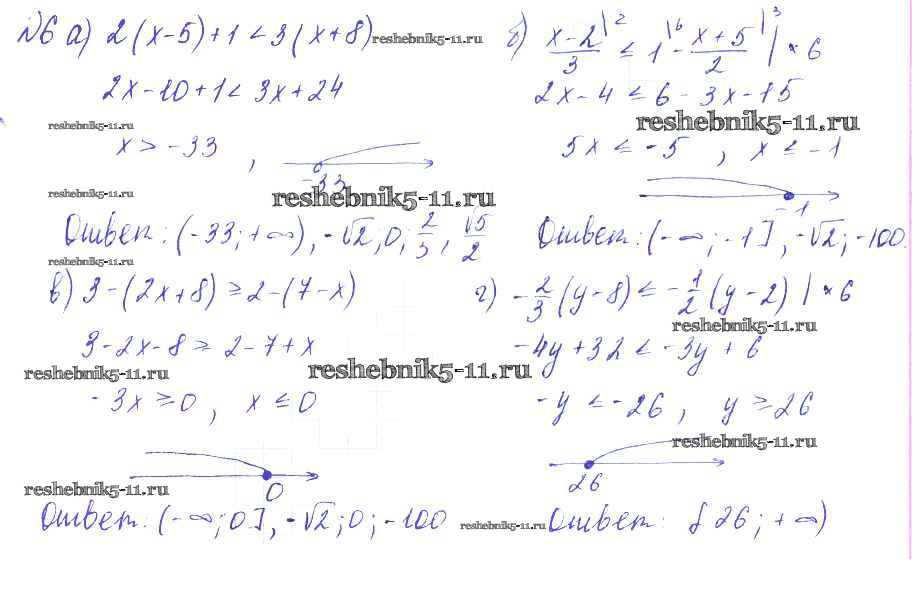 №6 а) 2(x-5)+1<3(x+8)
reshebnik5-11.ru
2x-10+1<3x+24
reshebnik5-11.ru
x>-33,
-33
reshebnik5-11.ru
reshebnik5-11.ru
Ответ: (-33;+∞), -√2; 0; 2/3, √5/2
reshebnik5-11.ru
б) (x-2)/3 |² ≤ 1 |⁶ - (x+5)/2 |³ | × 6
2x-4≤6-3x-15
reshebnik5-11.ru
5x≤-5, x≤-1
-1
Ответ: (-∞;-1], -√2; -100.
в) 3-(2x+8)≥2-(7-x)
3-2x-8≥2-7+x
reshebnik5-11.ru
reshebnik5-11.ru
-3x≥0, x≤0
reshebnik5-11.ru
0
Ответ: (-∞;0], -√2; 0; -100
reshebnik5-11.ru
г) -2/3(y-8)≤-1/2(y-2) | × 6
reshebnik5-11.ru
-4y+32≤-3y+6
-y≤-26, y≥26
reshebnik5-11.ru
26
Ответ: [26;+∞)